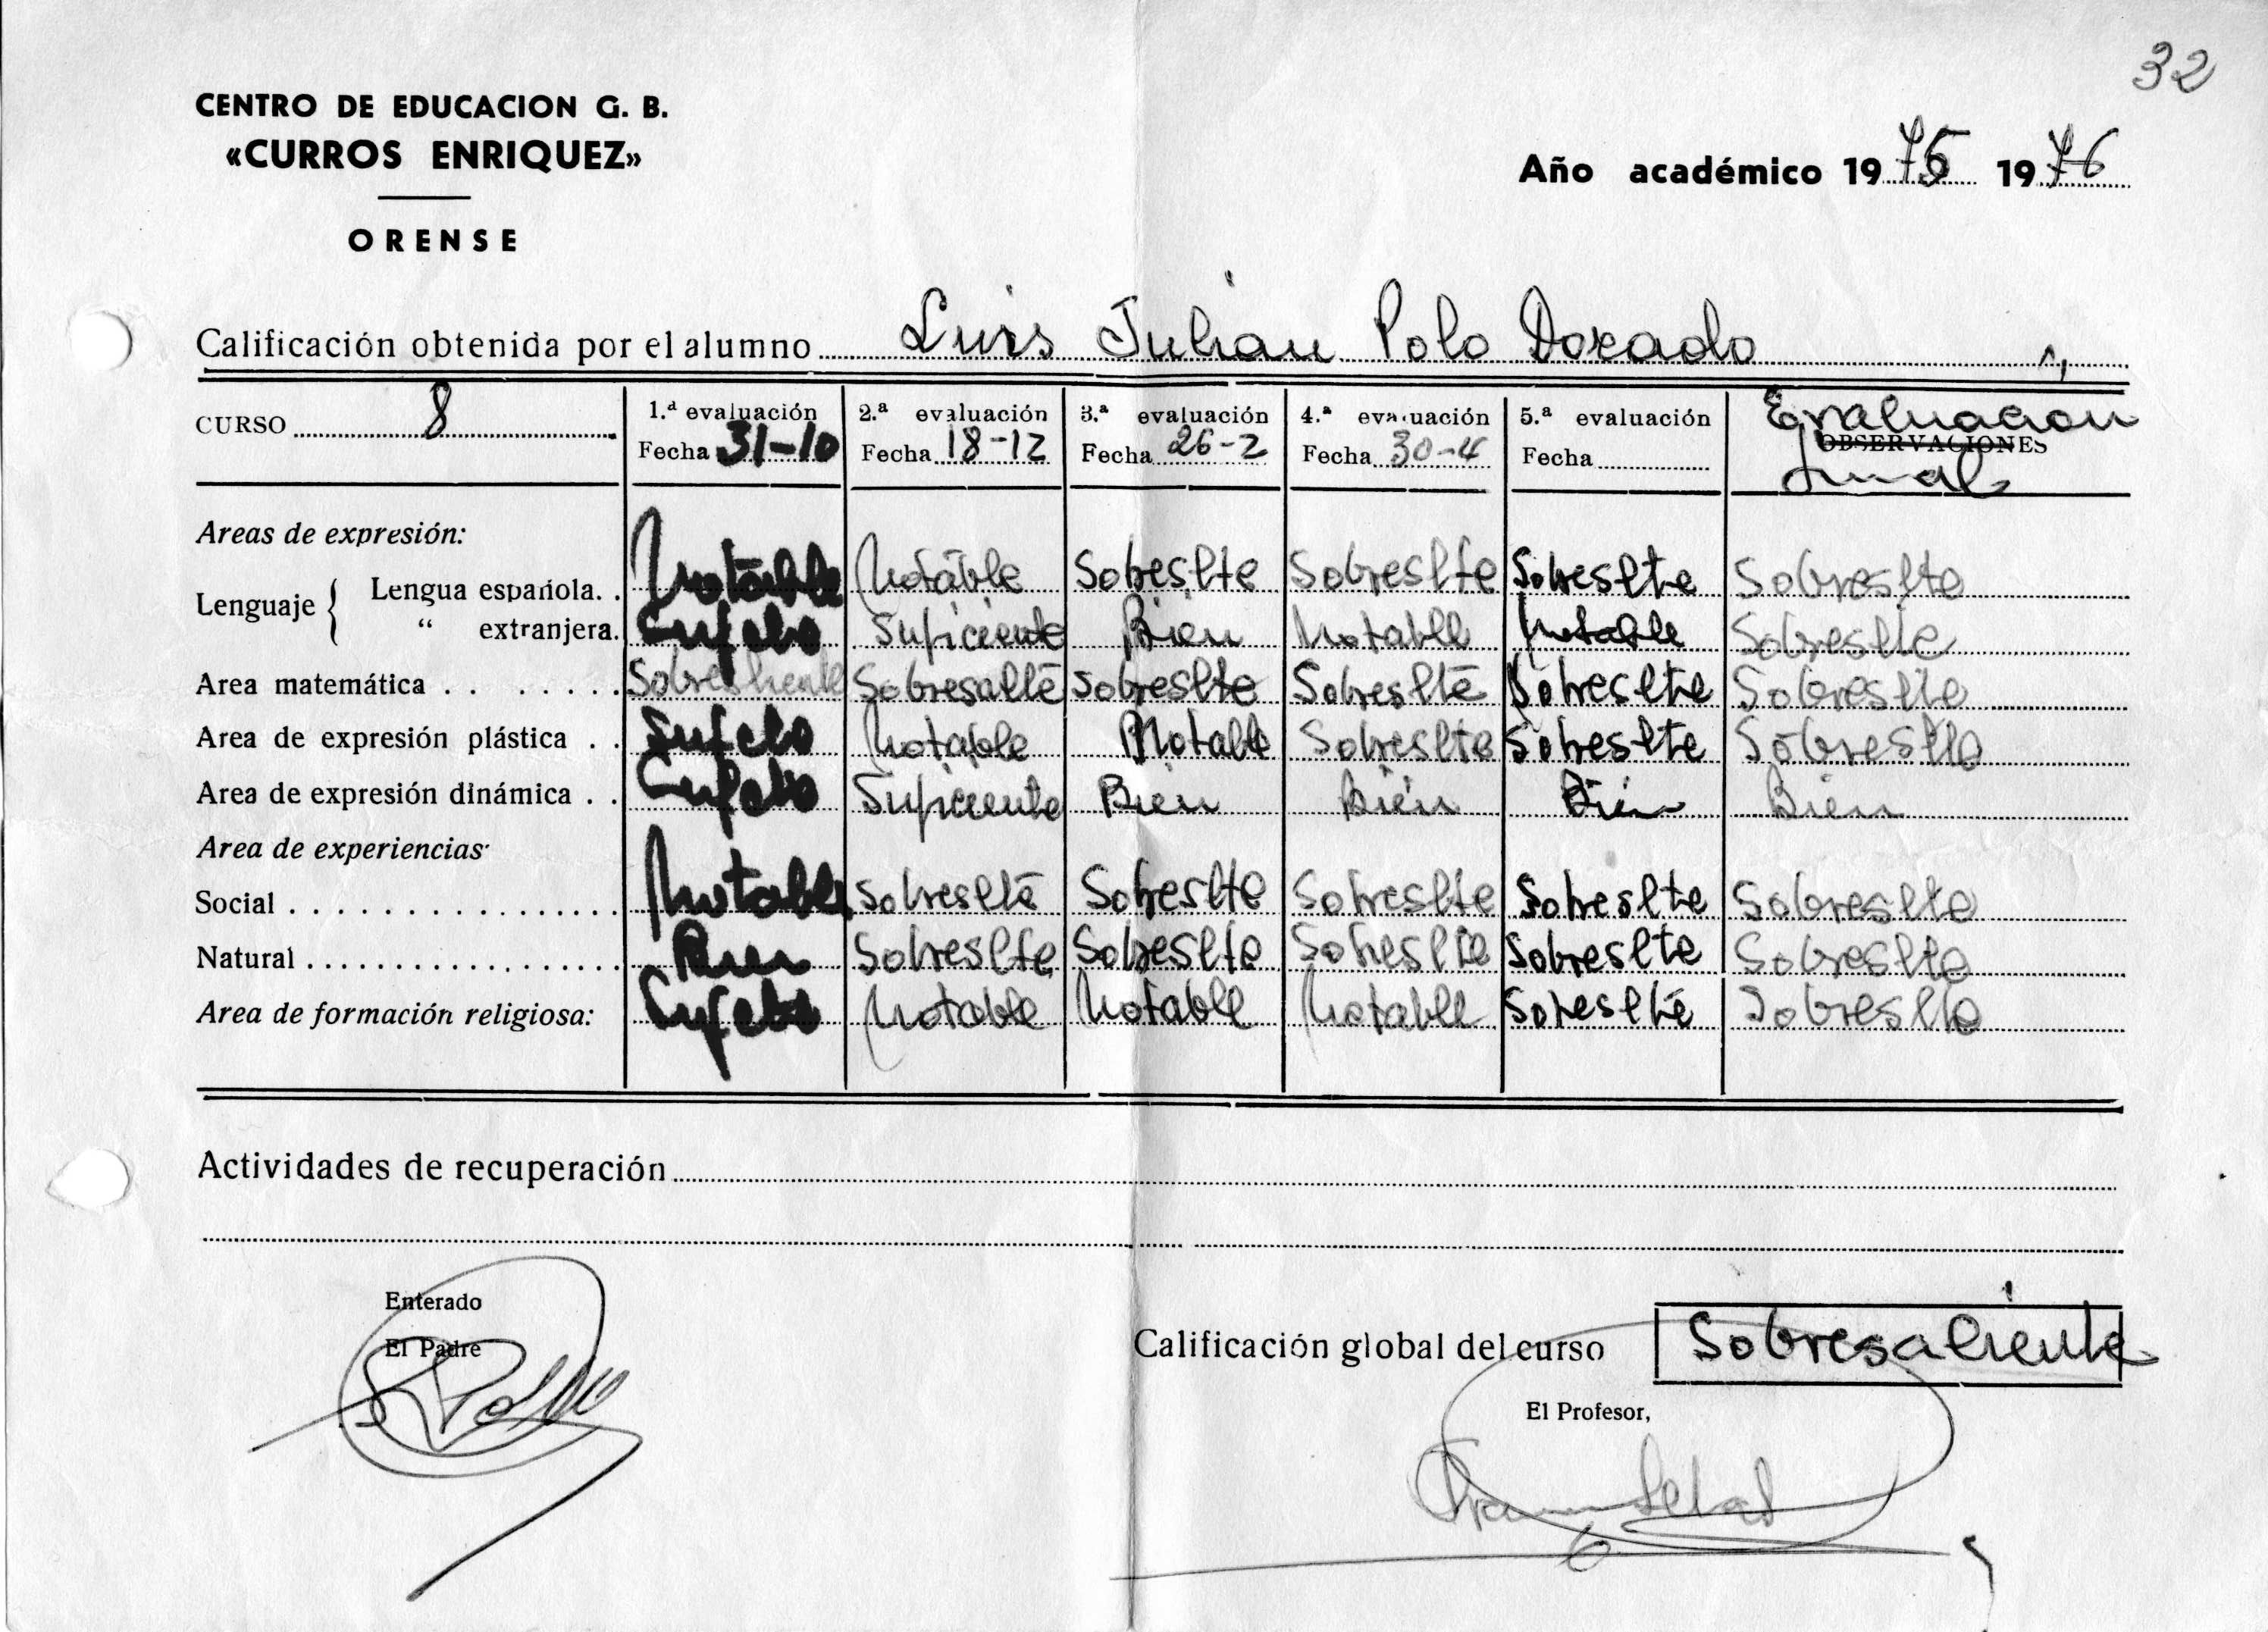 32
CENTRO DE EDUCACION G. B.
«CURROS ENRIQUEZ»
ORENSE
Año académico 1975 1976
Calificación obtenida por el alumno Luis Julian Polo Dorado
CURSO 8
1.ª evaluación Fecha 31-10
2.ª evaluación Fecha 18-12
3.ª evaluación Fecha 26-2
4.ª evaluación Fecha 30-4
5.ª evaluación Fecha
Evaluacion OBSERVACIONES final
Areas de expresión:
Lenguaje { Lengua española. . Notable Notable Sobreslte Sobreslte Sobreslte Sobreslte
“ extranjera. Sufcte Suficiente Bien Notable Notable Sobreslte
Area matemática . . . . . . . Sobresaliente Sobresalte Sobreslte Sobreslte Sobreslte Sobreslte
Area de expresión plástica . . Sufcte Notable Notable Sobreslte Sobreslte Sobreslte
Area de expresión dinámica . . Sufcte Suficiente Bien Bien Bien Bien
Area de experiencias:
Social . . . . . . . . . . . . . . . Notable Sobreslte Sobreslte Sobreslte Sobreslte Sobreslte
Natural . . . . . . . . . . . . . . . Bien Sobreslte Sobreslte Sobreslte Sobreslte Sobreslte
Area de formación religiosa: Sufcte Notable Notable Notable Sobreslte Sobreslte
Actividades de recuperación
Enterado
El Padre
Calificación global del curso Sobresaliente
El Profesor,